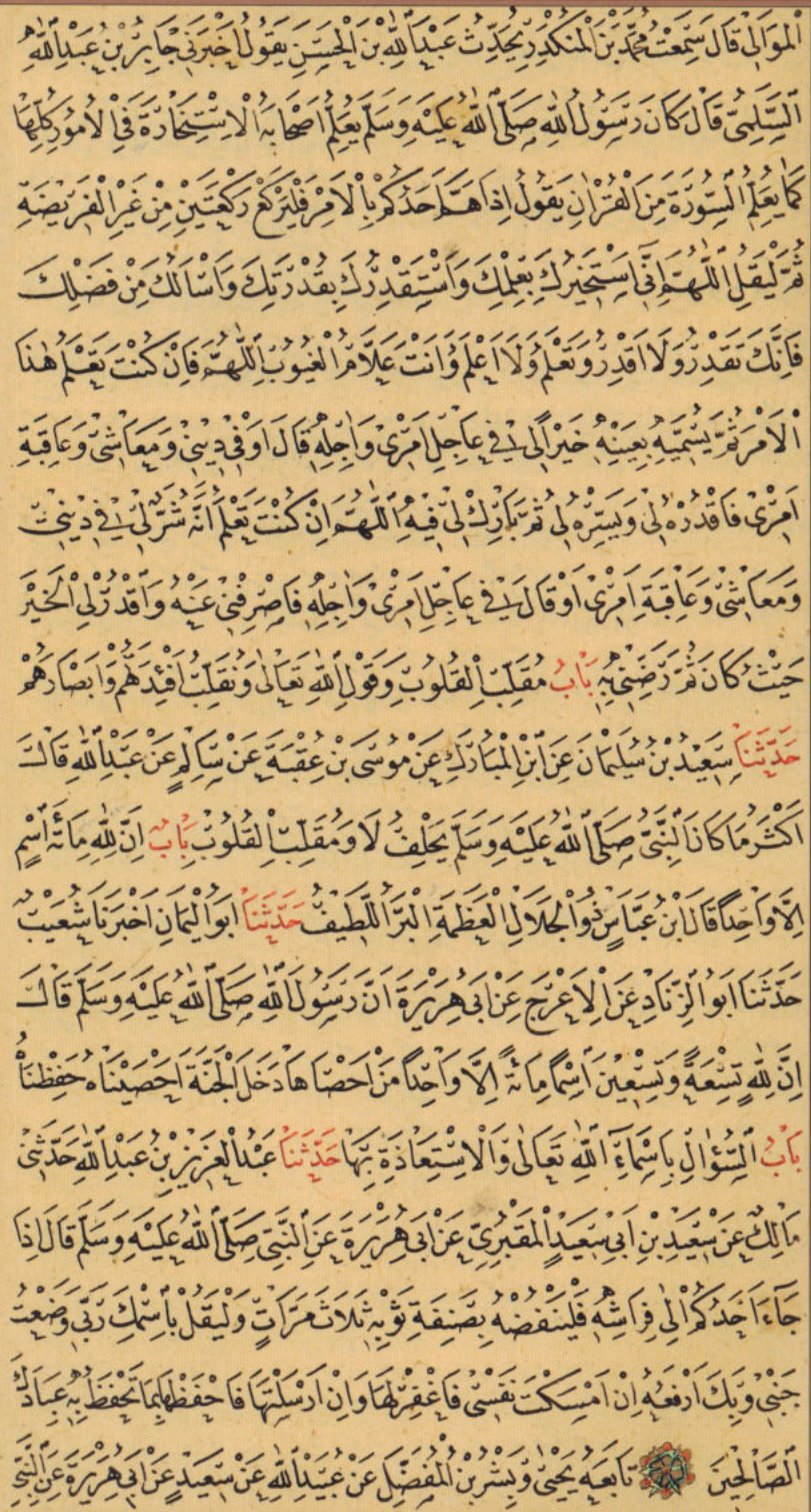 الْمَوَالِي قَالَ سَمِعْتُ مُحَمَّدَ بْنَ الْمُنْكَدِرِ يُحَدِّثُ عَبْدَ اللّٰهِ بْنَ الْحَسَنِ يَقُولُ أَخْبَرَنِي جَابِرُ بْنُ عَبْدِ اللّٰهِ
السَّلَمِيُّ قَالَ كَانَ رَسُولُ اللّٰهِ صَلَّى اللّٰهُ عَلَيْهِ وَسَلَّمَ يُعَلِّمُ أَصْحَابَهُ الْاِسْتِخَارَةَ فِي الْأُمُورِ كُلِّهَا
كَمَا يُعَلِّمُ السُّورَةَ مِنَ الْقُرْاٰنِ يَقُولُ اِذَا هَمَّ اَحَدُكُمْ بِالْاَمْرِ فَلْيَرْكَعْ رَكْعَتَيْنِ مِنْ غَيْرِ الْفَرِيضَةِ
ثُمَّ لْيَقُلِ اللّٰهُمَّ اِنِّي اَسْتَخِيرُكَ بِعِلْمِكَ وَاَسْتَقْدِرُكَ بِقُدْرَتِكَ وَاَسْاَلُكَ مِنْ فَضْلِكَ
فَاِنَّكَ تَقْدِرُ وَلَا اَقْدِرُ وَتَعْلَمُ وَلَا اَعْلَمُ وَاَنْتَ عَلَّامُ الْغُيُوبِ اَللّٰهُمَّ فَاِنْ كُنْتَ تَعْلَمُ هٰذَا
الْاَمْرَ ثُمَّ يُسَمِّيهِ بِعَيْنِهِ خَيْرًا لِي فِي عَاجِلِ اَمْرِي وَاٰجِلِهِ قَالَ اَوْ فِي دِينِي وَمَعَاشِي وَعَاقِبَةِ
اَمْرِي فَاقْدُرْهُ لِي وَيَسِّرْهُ لِي ثُمَّ بَارِكْ لِي فِيهِ اَللّٰهُمَّ اِنْ كُنْتَ تَعْلَمُ اَنَّهُ شَرٌّ لِي فِي دِينِي
وَمَعَاشِي وَعَاقِبَةِ اَمْرِي اَوْ قَالَ فِي عَاجِلِ اَمْرِي وَاٰجِلِهِ فَاصْرِفْنِي عَنْهُ وَاقْدُرْ لِي الْخَيْرَ
حَيْثُ كَانَ ثُمَّ رَضِّنِي بِهِ بَابُ مُقَلِّبِ الْقُلُوبِ وَقَوْلِ اللّٰهِ تَعَالٰى وَنُقَلِّبُ اَفْئِدَتَهُمْ وَاَبْصَارَهُمْ
حَدَّثَنَا سَعِيدُ بْنُ سُلَيْمَانَ عَنِ ابْنِ الْمُبَارَكِ عَنْ مُوسَى بْنِ عُقْبَةَ عَنْ سَالِمٍ عَنْ عَبْدِ اللّٰهِ قَالَ
اَكْثَرُ مَا كَانَ النَّبِيُّ صَلَّى اللّٰهُ عَلَيْهِ وَسَلَّمَ يَحْلِفُ لَا وَمُقَلِّبِ الْقُلُوبِ بَابٌ اِنَّ لِلّٰهِ مِائَةَ اسْمٍ
اِلَّا وَاحِدًا قَالَ ابْنُ عَبَّاسٍ ذُو الْجَلَالِ الْعَظَمَةِ الْبَرُّ اللَّطِيفُ حَدَّثَنَا اَبُو الْيَمَانِ اَخْبَرَنَا شُعَيْبٌ
حَدَّثَنَا اَبُو الزِّنَادِ عَنِ الْاَعْرَجِ عَنْ اَبِي هُرَيْرَةَ اَنَّ رَسُولَ اللّٰهِ صَلَّى اللّٰهُ عَلَيْهِ وَسَلَّمَ قَالَ
اِنَّ لِلّٰهِ تِسْعَةً وَتِسْعِينَ اسْمًا مِائَةً اِلَّا وَاحِدًا مَنْ اَحْصَاهَا دَخَلَ الْجَنَّةَ اَحْصَيْنَاهُ حَفِظْنَاهُ
بَابُ السُّؤَالِ بِاَسْمَاءِ اللّٰهِ تَعَالٰى وَالْاِسْتِعَاذَةِ بِهَا حَدَّثَنَا عَبْدُ الْعَزِيزِ بْنُ عَبْدِ اللّٰهِ حَدَّثَنِي
مَالِكٌ عَنْ سَعِيدِ بْنِ اَبِي سَعِيدٍ الْمَقْبُرِيِّ عَنْ اَبِي هُرَيْرَةَ عَنِ النَّبِيِّ صَلَّى اللّٰهُ عَلَيْهِ وَسَلَّمَ قَالَ اِذَا
جَاءَ اَحَدُكُمْ اِلٰى فِرَاشِهِ فَلْيَنْفُضْهُ بِصَنِفَةِ ثَوْبِهِ ثَلَاثَ مَرَّاتٍ وَلْيَقُلْ بِاسْمِكَ رَبِّي وَضَعْتُ
جَنْبِي وَبِكَ اَرْفَعُهُ اِنْ اَمْسَكْتَ نَفْسِي فَاغْفِرْ لَهَا وَاِنْ اَرْسَلْتَهَا فَاحْفَظْهَا بِمَا تَحْفَظُ بِهِ عِبَادَكَ
الصَّالِحِينَ تَابَعَهُ يَحْيٰى وَبِشْرُ بْنُ الْمُفَضَّلِ عَنْ عُبَيْدِ اللّٰهِ عَنْ سَعِيدٍ عَنْ اَبِي هُرَيْرَةَ عَنِ النَّبِيِّ